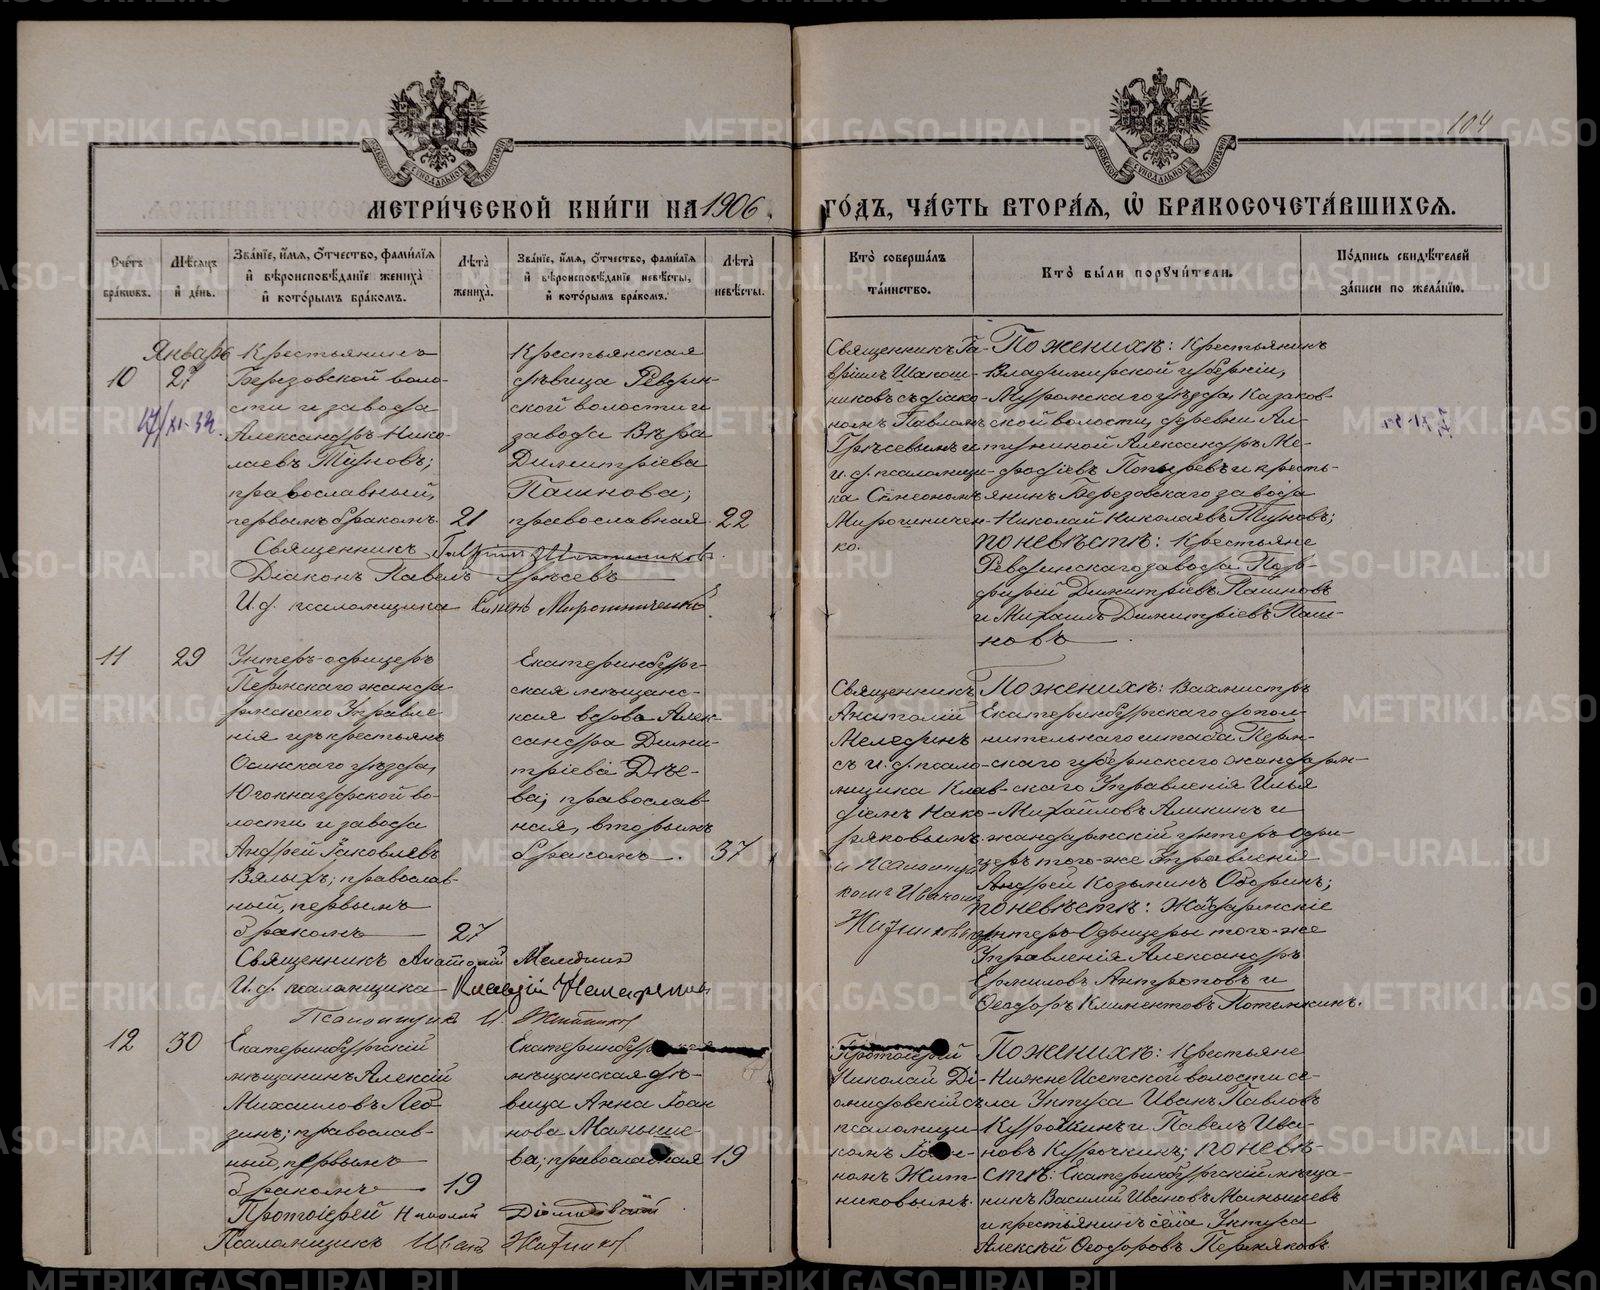 104
МЕТРИ́ЧЕСКОЙ КНИ́ГИ НА 1906 ГО́ДЪ, ЧА́СТЬ ВТОРА́Я, Ѡ҆ БРАКОСОЧЕТА́ВШИХСЯ.
Сче́тъ бра́ковъ.
Мѣ́сяцъ и҆ де́нь.
Зва́нїе, и҆́мя, ѻ҆́тчество, фами́лїя
и҆ вѣроисповѣ́данїе жениха̀
и҆ кото́рымъ бра́комъ.
Лѣта̀ жениха̀.
Зва́нїе, и҆́мя, ѻ҆́тчество, фами́лїя
и҆ вѣроисповѣ́данїе невѣ́сты,
и҆ кото́рымъ бра́комъ.
Лѣта̀ невѣ́сты.
Кто̀ соверша́лъ
та́инство.
Кто̀ бы́ли порꙋчи́тели.
По́дпись свидѣ́телей
за́писи по жела́нїю.
Январь
10
27
17/XI-32.
Крестьянинъ
Березовской воло-
сти и завода
Александръ Нико-
лаевъ Туновъ;
православный,
первымъ бракомъ.
21
Крестьянская
дѣвица Ревдин-
ской волости и
завода Вѣра
Димитріева
Пашнова;
православная
22
Священникъ Гавріилъ Шапошниковъ.
Діаконъ Павелъ Грѣсевъ
И. д. псаломщика Мирошниченко
Священникъ Га-
вріилъ Шапош-
никовъ съ діако-
номъ Павломъ
Грѣсевымъ и
и. д. псаломщи-
ка Сѵмеономъ
Мирошничен-
ко.
По женихѣ: Крестьянинъ
Владимирской губерніи,
Муромскаго уѣзда Казаков-
ской волости, деревни Ал-
Александръ Ме-
фодіевъ Попыревъ и кресть-
янинъ Березовскаго завода
Николай Николаевъ Туновъ;
по невѣстѣ: Крестьяне
Ревдинскаго завода Пор-
фирій Димитріевъ Пашновъ
и Михаилъ Димитріевъ Паш-
новъ
11
29
Унтеръ-офицеръ
Пермскаго жанда-
рмскаго Управле
нія изъ крестьянъ
Осинскаго уѣзда,
Югокнауфской во-
лости и завода
Андрей Іаковлевъ
Вялыхъ; православ-
ный, первымъ
бракомъ
27
Екатеринбург-
ская мѣщанс-
кая вдова Алек-
сандра Дими-
тріева Дѣе-
ва; православ-
ная, вторымъ
бракомъ.
37
Священникъ Анатолій Мелединъ
И. д. псаломщика Клавдій Некоряковъ
Псаломщикъ И. Житниковъ
Священникъ
Анатолій
Мелединъ
съ и. д. псало-
мщика Клав-
діемъ Неко-
ряковымъ
и Псаломщи
комъ Иваномъ
Житниковымъ
По женихѣ: Вахмистръ
Екатеринбургскаго допол-
нительнаго штаба Перм-
скаго губернскаго жандарм-
скаго Управленія Илья
Михайловъ Аликинъ и
жандармскій унтеръ-офи-
церъ того-же Управленія
Андрей Козьминъ Оборинъ;
по невѣстѣ: Жандармскіе
унтеръ-Офицеры того-же
Управленія Александръ
Ермиловъ Антроповъ и
Ѳеодоръ Климентовъ Потемкинъ.
12
30
Екатеринбургскій
мѣщанинъ Алексій
Михаиловъ Леб-
зинъ; православ-
ный, первымъ
бракомъ
19
Екатеринбургская
мѣщанская дѣ-
вица Анна Іоан
нова Малыше-
ва; православная
19
Протоіерей Николай Діомидовскій
Псаломщикъ Иванъ Житниковъ
Протоіерей
Николай Ді-
омидовскій съ
псаломщи-
комъ Іоан-
номъ Жит-
никовымъ.
По женихѣ: Крестьяне
Нижне Исетской волости се-
ла Уктуса Иванъ Павловъ
Курочкинъ и Павелъ Ива-
новъ Курочкинъ; по невѣ-
стѣ: Екатеринбургскій мѣща-
нинъ Василій Ивановъ Малышевъ
и крестьянинъ села Уктуса
Алексѣй Ѳеодоровъ Пермяковъ.